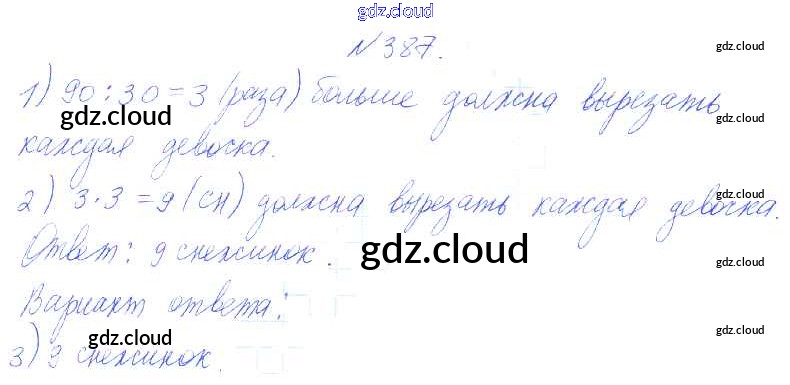 gdz.cloud
№387.
gdz.cloud
1) 90:30=3 (раза) больше должна вырезать
gdz.cloud
gdz.cloud
каждая девочка.
2) 3·3=9 (сн) должна вырезать каждая девочка.
gdz.cloud
Ответ: 9 снежинок.
gdz.cloud
gdz.cloud
Вариант ответа:
gdz.cloud
3) 9 снежинок.
gdz.cloud